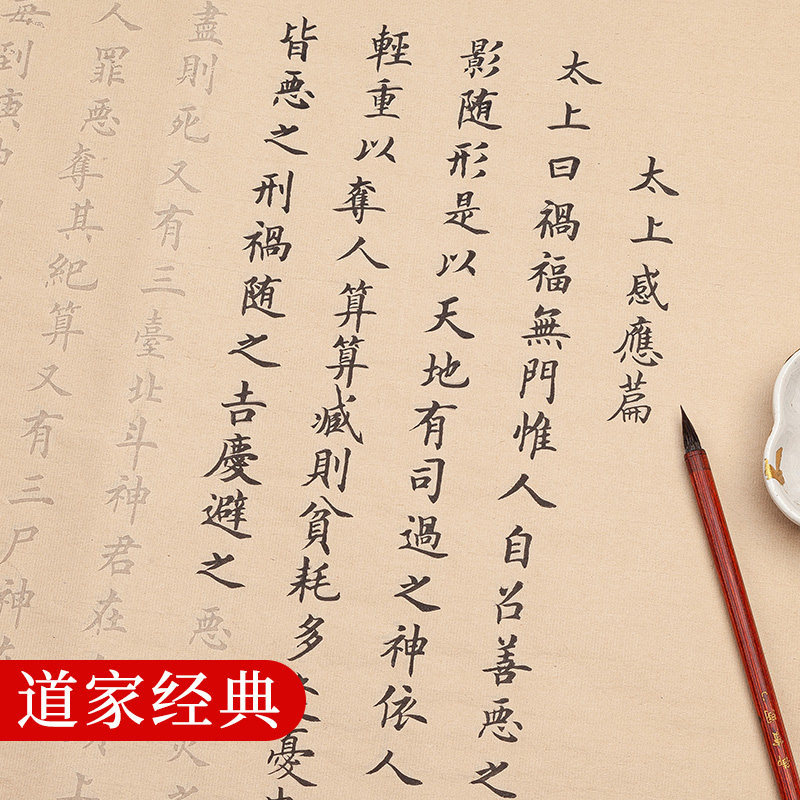 太上感應篇
太上曰禍福無門惟人自召善悪之
影随形是以天地有司過之神依人
輕重以奪人算算减則貧耗多憂
皆悪之刑禍随之吉慶避之悪災之
盡則死又有三臺北斗神君在上
人罪悪奪其紀算又有三尸神
每到庚申
道家经典